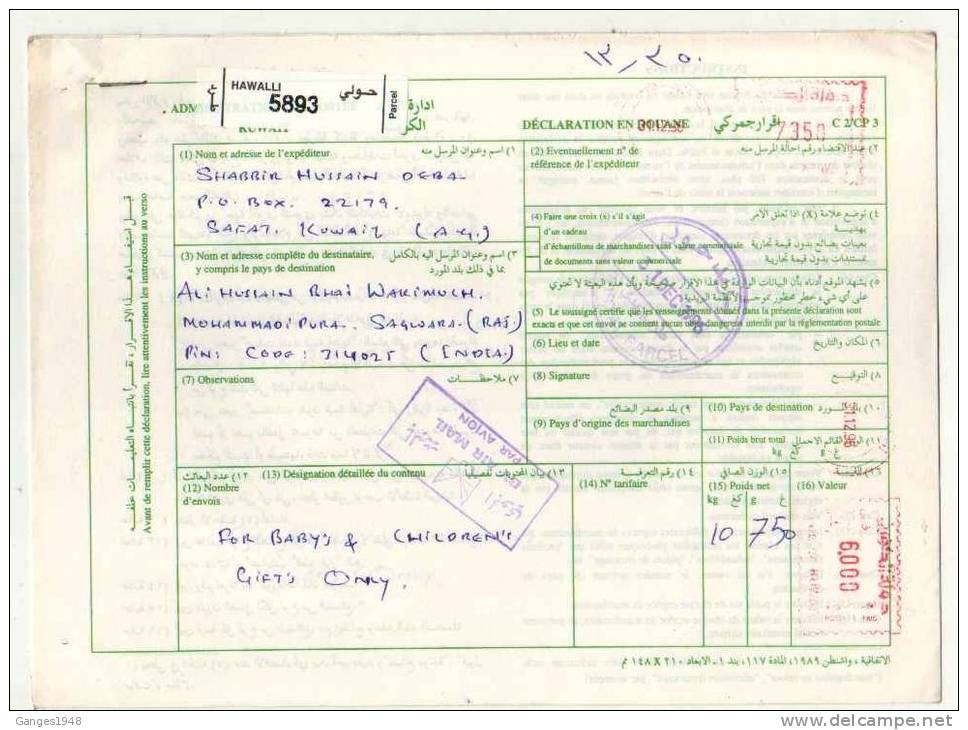 ١٣/٣٥٠
HAWALLI حولي
5893
Parcel
ADM
ادارة
KUWAIT
DÉCLARATION EN DOUANE اقرار جمركي C 2/CP 3
31.12.96
7350
(1) Nom et adresse de l'expéditeur ١) اسم وعنوان المرسل منه
SHABBIR HUSSAIN DEBA.
P.O BOX. 22179.
SAFAT. KUWAIT (A.G.)
(2) Eventuellement n° de
référence de l'expéditeur.
٢) عند الاقتضاء رقم احالة المرسل منه
(3) Nom et adresse complète du destinataire, ٣) اسم وعنوان المرسل اليه بالكامل
y compris le pays de destination بما في ذلك بلد المورد
ALI HUSSAIN BHAI WARIMUCH.
MOHAMMADIPURA. SAGWARA. (RAJ.)
PIN: CODE: 314025 (INDIA.)
(4) Faire une croix (x) s'il s'agit ٤) توضع علامة (X) اذا تعلق الأمر
d'un cadeau بهدية
d'échantillons de marchandises sans valeur commerciale بعينات بضائع بدون قيمة تجارية
de documents sans valeur commerciale مستندات بدون قيمة تجارية
٥) يشهد الموقع أدناه بأن البيانات الواردة في هذا الاقرار صحيحة وبأن هذه البعيثة لا تحتوي
على أي شيء خطر محظور بموجب الأنظمة البريدية
(5) Le soussigné certifie que les renseignements donnés dans la présente déclaration sont
exacts et que cet envoi ne contient aucun objet dangereux interdit par la réglementation postale
31 DEC 1996
PARCEL
(6) Lieu et date ٦) المكان والتاريخ
(7) Observations ٧) ملاحظات
(8) Signature ٨) التوقيع
AIR MAIL
PAR AVION
٩) بلد مصدر البضائع
(9) Pays d'origine des marchandises
(10) Pays de destination
(11) Poids brut total
kg كغ g غ
31.12.96
١٢) عدد البعائث
(12) Nombre
d'envois
(13) Désignation détaillée du contenu ١٣) بيان المحتويات تفصيليا
١٤) رقم التعرفة
(14) N° tarifaire
١٥) الوزن الصافي
(15) Poids net
kg كغ g غ
(16) Valeur
10 750
6.000
FOR BABY'S & CHILDREN'S
GIFT'S ONLY.
قبل استيفاء هذا الاقرار، تقرأ بانتباه التعليمات خلفه
Avant de remplir cette déclaration, lire attentivement les instructions au verso
الاتفاقية، واشنطن ١٩٨٩، المادة ١١٧، بند ١ - الابعاد ٢١٠ X ١٤٨ م م
Ganges1948
delcampe.net